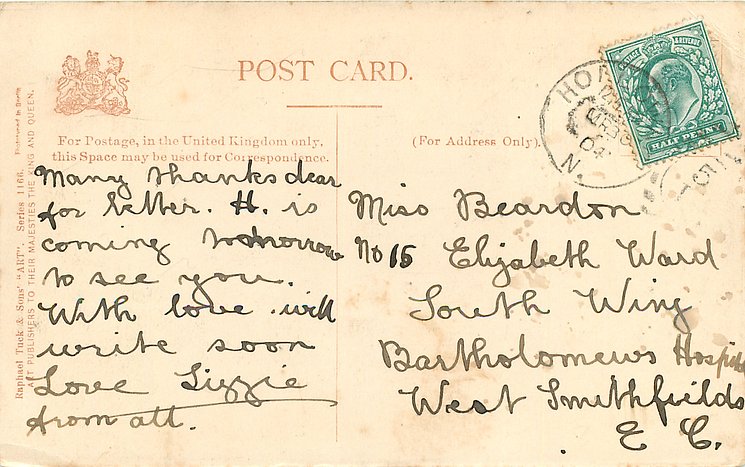 POST CARD.
For Postage, in the United Kingdom only,
this Space may be used for Correspondence.
(For Address Only).
Raphael Tuck & Sons' "ART". Series 1166.
ART PUBLISHERS TO THEIR MAJESTIES THE KING AND QUEEN.
POSTAGE & REVENUE
HALF PENNY
HO
N.
Many thanks dear
for letter. H. is
coming tomorrow
to see you.
With love. will
write soon
Love Lizzie
from all.
Miss Beardon
No 15 Elizabeth Ward
South Wing
Bartholomews Hospi
West Smithfields
E C.